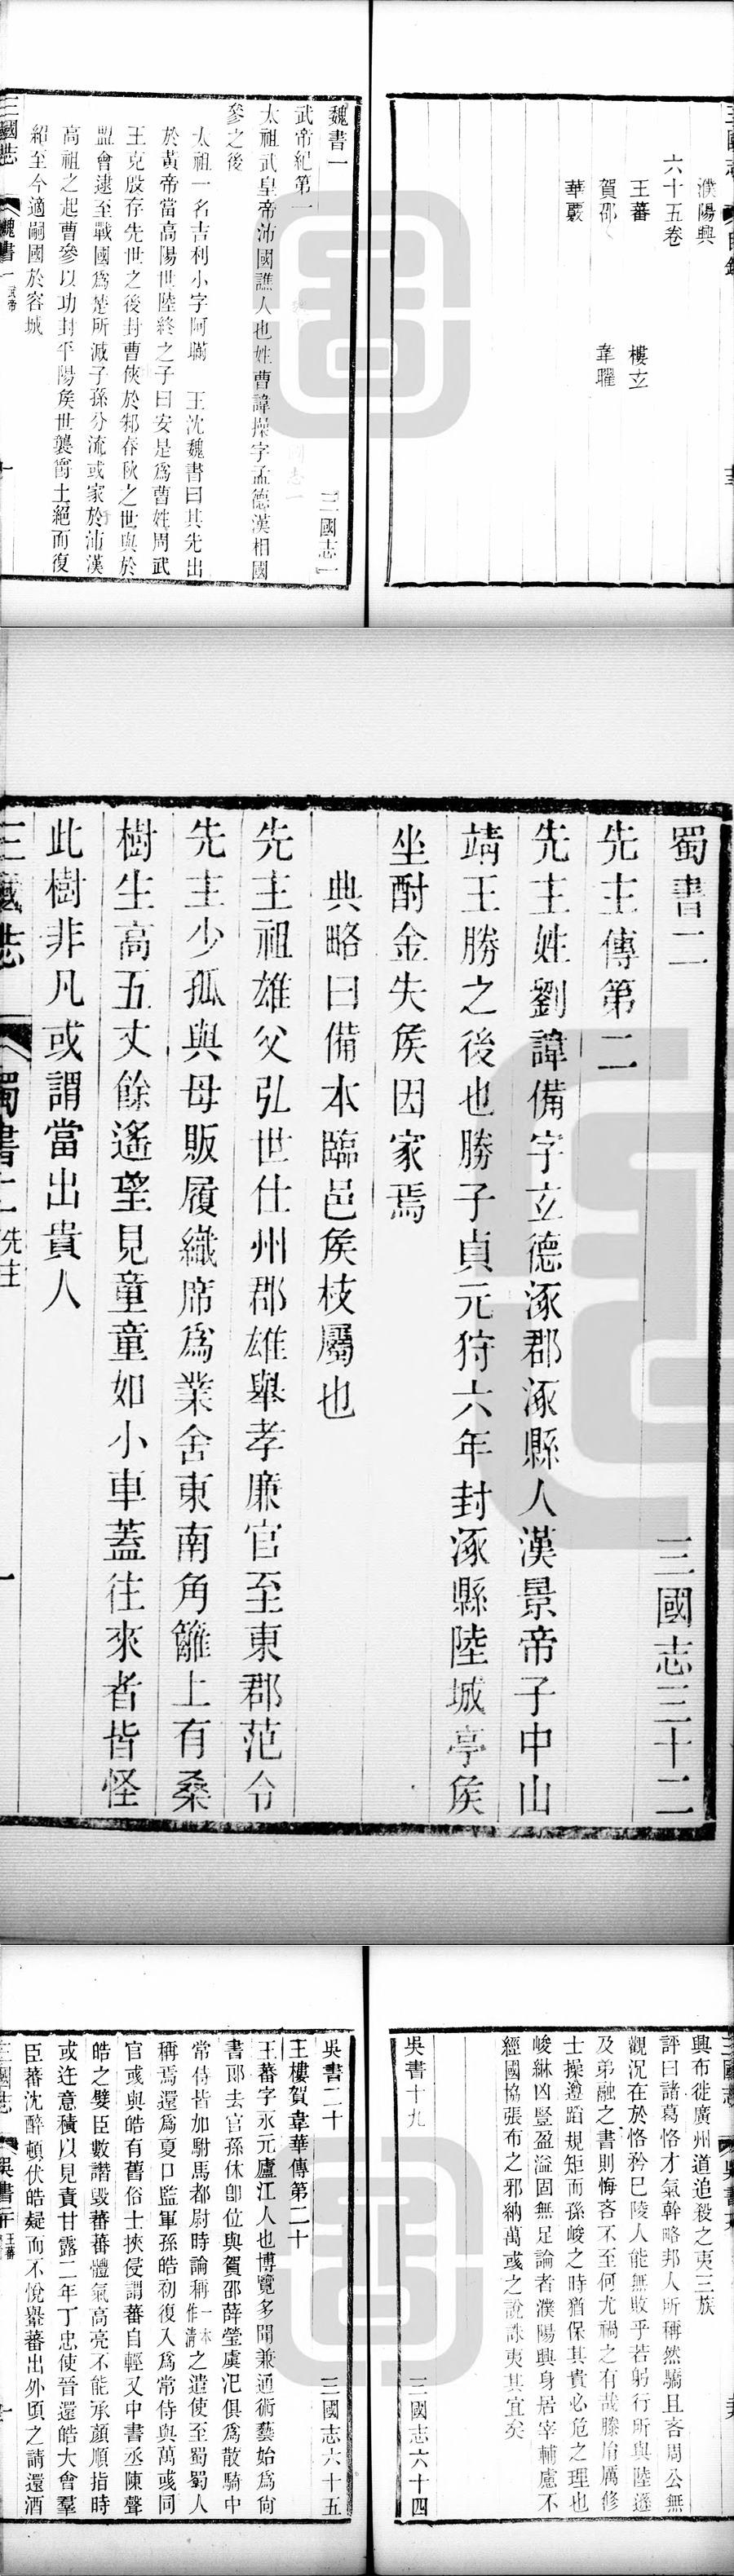 濮陽興
六十五卷
王蕃 樓玄
賀邵 韋曜
華覈
魏書一 三國志一
武帝紀第一
太祖武皇帝沛國譙人也姓曹諱操字孟德漢相國
參之後
太祖一名吉利小字阿瞞 王沈魏書曰其先出
於黃帝當高陽世陸終之子曰安是爲曹姓周武
王克殷存先世之後封曹俠於邾春秋之世與於
盟會逮至戰國爲楚所滅子孫分流或家於沛漢
高祖之起曹參以功封平陽矦世襲爵土絕而復
紹至今適嗣國於容城
三國志 魏書一 武帝 一
蜀書二 三國志三十二
先主傳第二
先主姓劉諱備字玄德涿郡涿縣人漢景帝子中山
靖王勝之後也勝子貞元狩六年封涿縣陸城亭矦
坐酎金失矦因家焉
典略曰備本臨邑矦枝屬也
先主祖雄父弘世仕州郡雄舉孝廉官至東郡范令
先主少孤與母販履織席爲業舍東南角籬上有桑
樹生高五丈餘遙望見童童如小車蓋往來者皆怪
此樹非凡或謂當出貴人
三國志 蜀書二 先主 一
興布徙廣州道追殺之夷三族
評曰諸葛恪才氣幹略邦人所稱然驕且吝周公無
觀況在於恪矜己陵人能無敗乎若躬行所與陸遜
及弟融之書則悔吝不至何尤禍之有哉滕胤厲修
士操遵蹈規矩而孫峻之時猶保其貴必危之理也
峻綝凶豎盈溢固無足論者濮陽興身居宰輔慮不
經國協張布之邪納萬彧之說誅夷其宜矣
吳書十九 三國志六十四
吳書二十 三國志六十五
王樓賀韋華傳第二十
王蕃字永元廬江人也博覽多聞兼通術藝始爲尙
書郎去官孫休卽位與賀邵薛瑩虞汜俱爲散騎中
常侍皆加駙馬都尉時論稱一本作清之遣使至蜀蜀人
稱焉還爲夏口監軍孫皓初復入爲常侍與萬彧同
官彧與皓有舊俗士挾侵謂蕃自輕又中書丞陳聲
皓之嬖臣數譖毀蕃蕃體氣高亮不能承顏順指時
或迕意積以見責甘露二年丁忠使晉還皓大會羣
臣蕃沈醉頓伏皓疑而不悅轝蕃出外頃之請還酒
三國志 吳書二十 王蕃 一